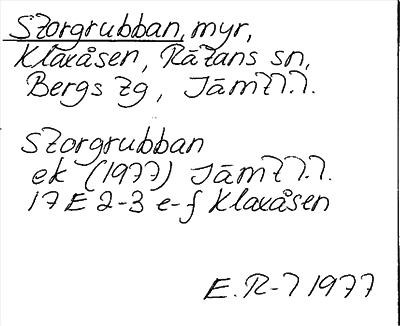 Storgrubban, myr,
Klaxåsen, Rätans sn,
Bergs tg, Jämtl.l.
Storgrubban
ek (1977) Jämtl.l.
17 E 2-3 e-f Klaxåsen
E.R-l 1977